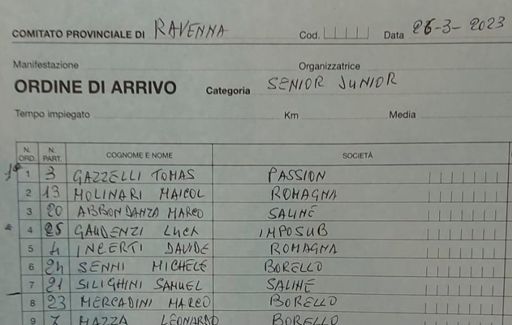 COMITATO PROVINCIALE DI RAVENNA Cod. Data 26-3-2023
Manifestazione Organizzatrice
ORDINE DI ARRIVO Categoria SENIOR JUNIOR
Tempo impiegato Km Media
N. ORD. N. PART. COGNOME E NOME SOCIETÀ
1 3 GAZZELLI TOMAS PASSION
2 13 MOLINARI MAICOL ROMAGNA
3 20 ABBONDANZA MARCO SALINE
4 25 GAUDENZI LUCA IMPOSUB
5 4 INCERTI DAVIDE ROMAGNA
6 24 SENNI MICHELE BORELLO
7 21 SILIGHINI SAMUEL SALINE
8 23 MERCADINI MARCO BORELLO
9 7 MAZZA LEONARDO BORELLO